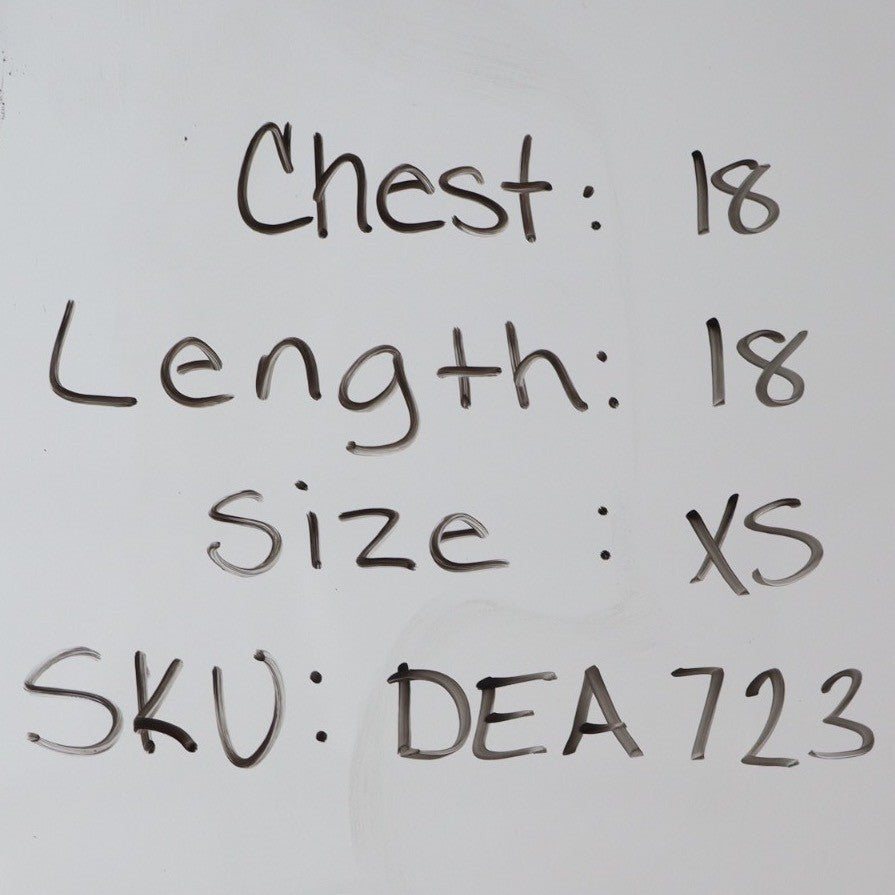 Chest: 18
Length: 18
Size : XS
SKU: DEA 723